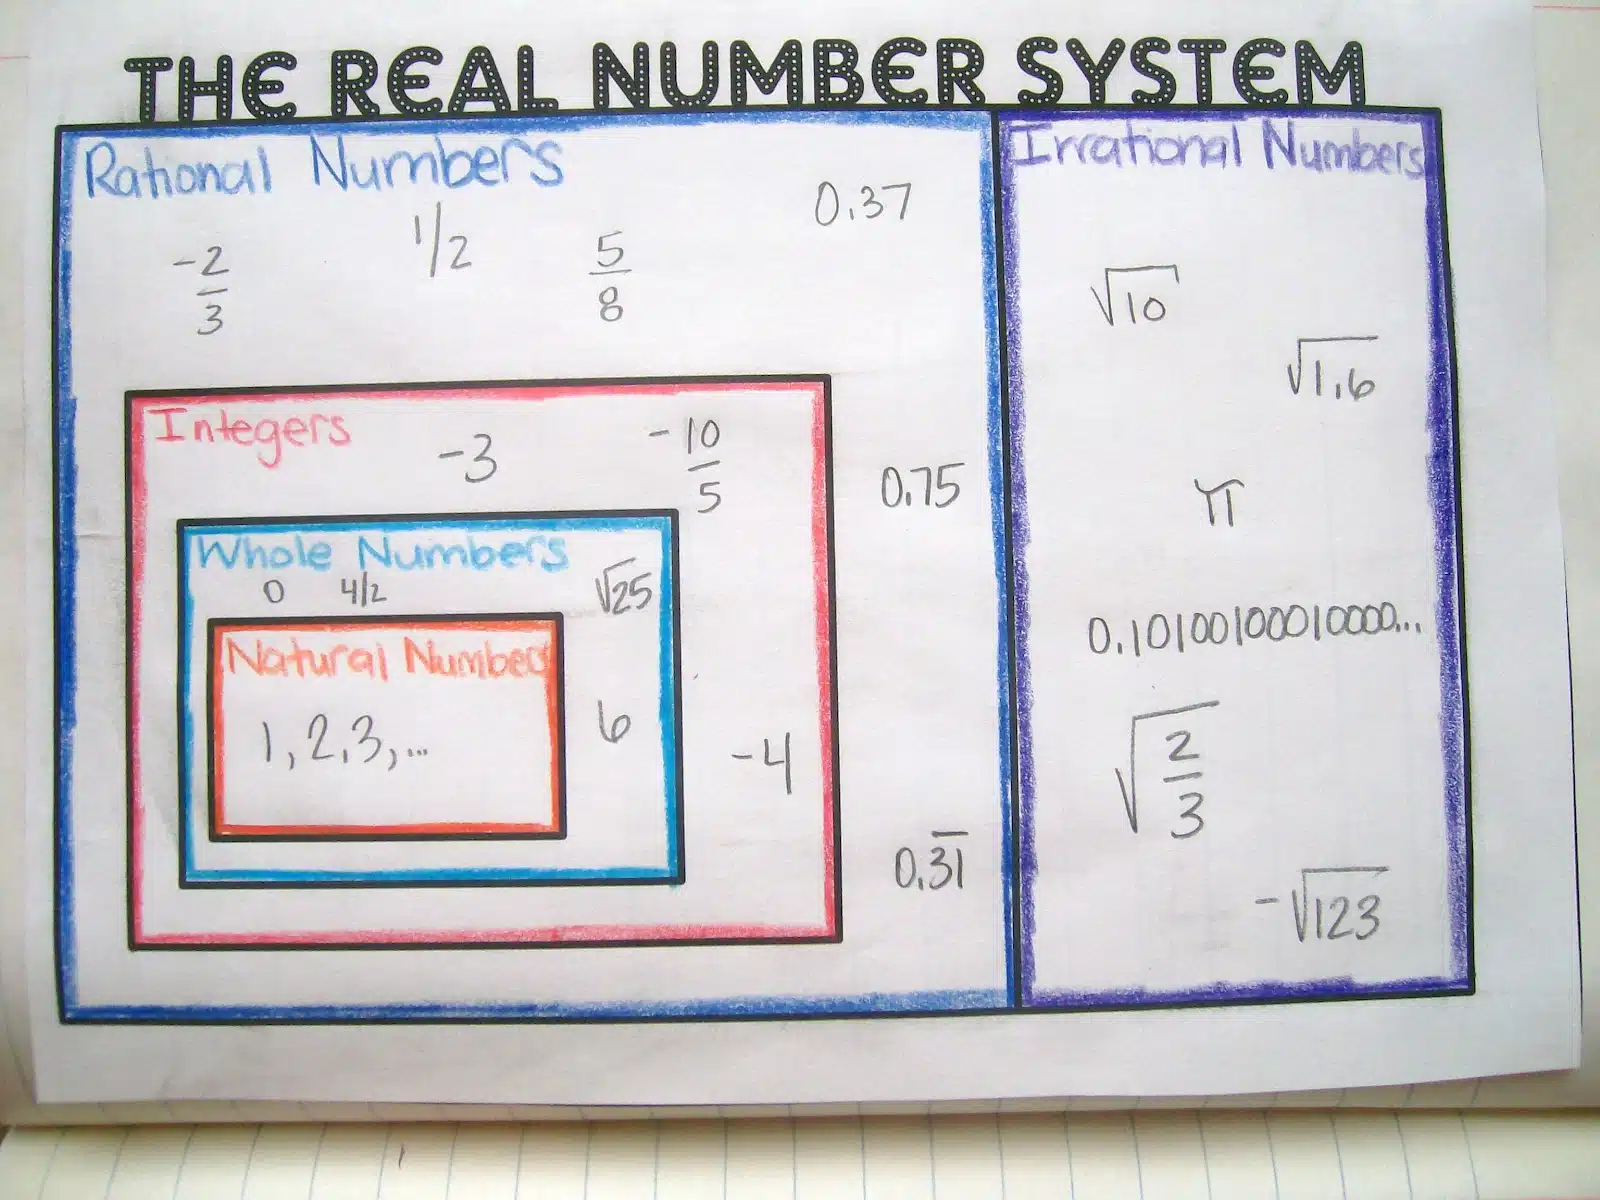 THE REAL NUMBER SYSTEM
Rational Numbers
0.37
-2/3
1/2
5/8
Integers
-3
-10/5
0.75
Whole Numbers
0 4/2 √25
Natural Numbers
1, 2, 3, ...
6
-4
0.3̅1̅
Irrational Numbers
√10
√1.6
π
0.10100100010000...
√2/3
-√123